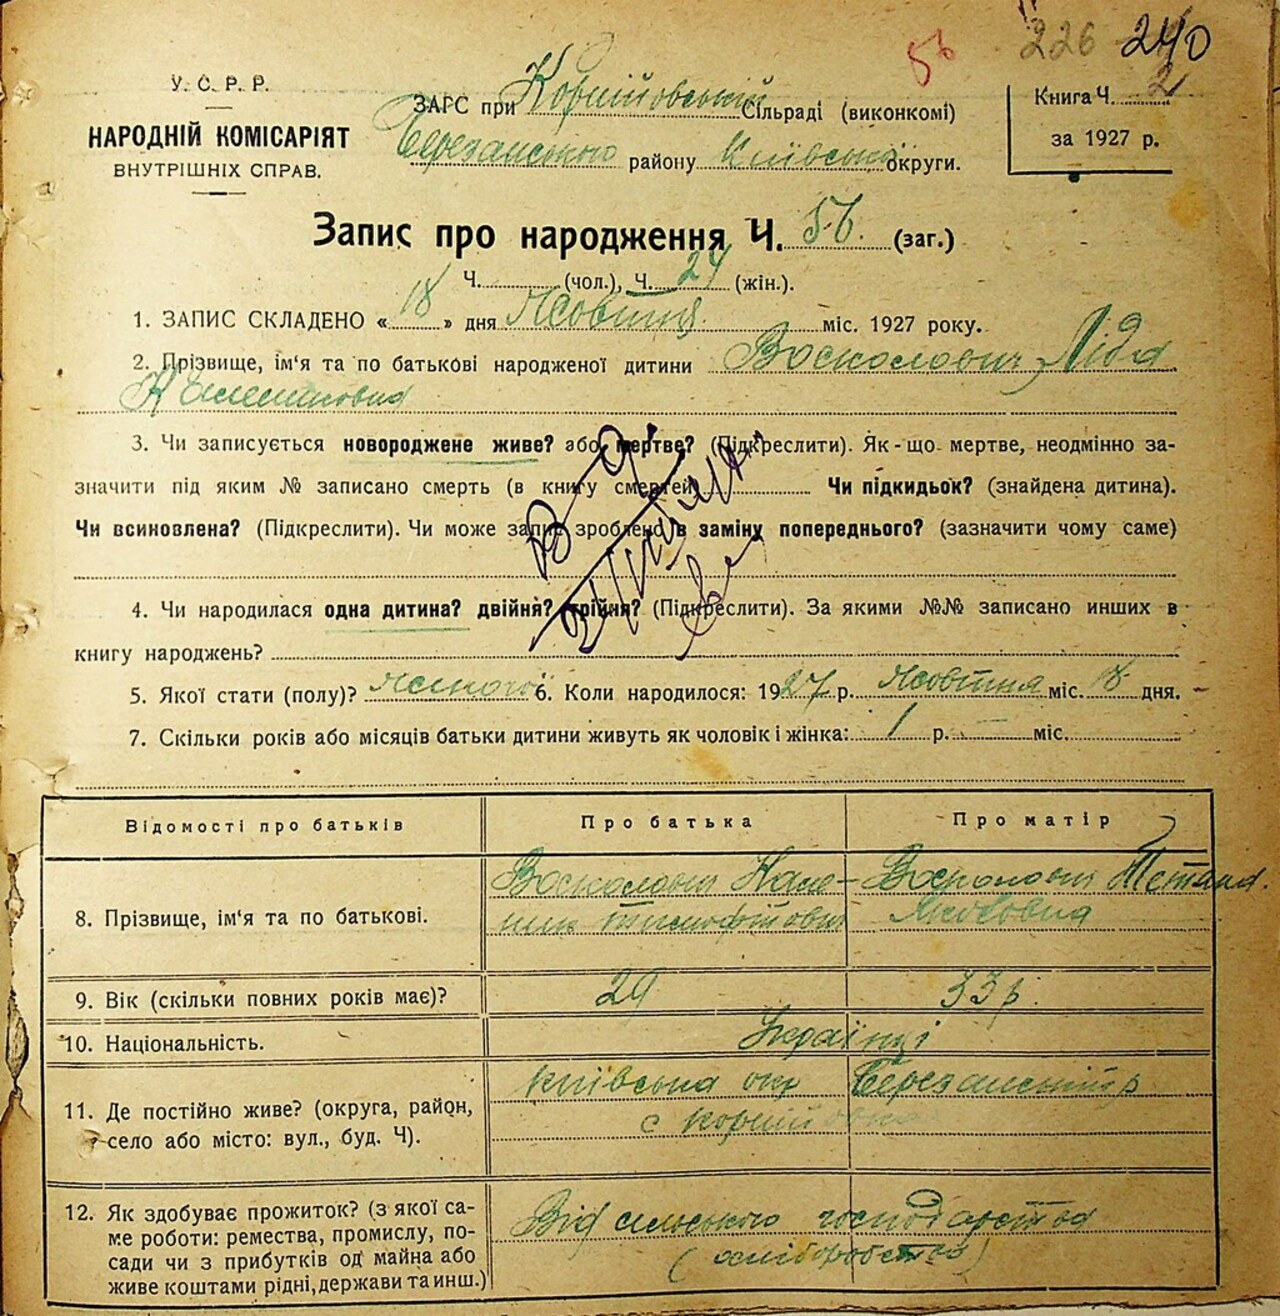 56 226 240
У. С. Р. Р.
НАРОДНІЙ КОМІСАРІЯТ
ВНУТРІШНІХ СПРАВ.
ЗАГС при Корніївській Сільраді (виконкомі)
Березанського району Київської округи.
Книга Ч. 2
за 1927 р.
Запис про народження Ч. 56. (заг.)
Ч. (чол.), Ч. 29 (жін.).
1. ЗАПИС СКЛАДЕНО « 18 » дня Жовтня міс. 1927 року.
2. Прізвище, ім'я та по батькові народженої дитини Восколович Ліда
3. Чи записується новороджене живе? або мертве? (Підкреслити). Як-що мертве, неодмінно за-
значити під яким № записано смерть (в книгу смертей Чи підкидьок? (знайдена дитина).
Чи всиновлена? (Підкреслити). Чи може запис зроблено в заміну попереднього? (зазначити чому саме)
4. Чи народилася одна дитина? двійня? трійня? (Підкреслити). За якими №№ записано инших в
книгу народжень?
5. Якої стати (полу)? Жіночої 6. Коли народилося: 1927 р. Жовтня міс. 18 дня.
7. Скільки років або місяців батьки дитини живуть як чоловік і жінка: 1 р. — міс.
Відомості про батьків Про батька Про матір
8. Прізвище, ім'я та по батькові.
Восколович Восколович
Тимофійович Якововна
9. Вік (скільки повних років має)? 29 33 р.
10. Національність. Українці
11. Де постійно живе? (округа, район,
село або місто: вул., буд. Ч).
Київська окр Березанський р
с Корніївка
12. Як здобуває прожиток? (з якої са-
ме роботи: ремества, промислу, по-
сади чи з прибутків од майна або
живе коштами рідні, держави та инш.)
Від сільського господарства
(хліборобство)